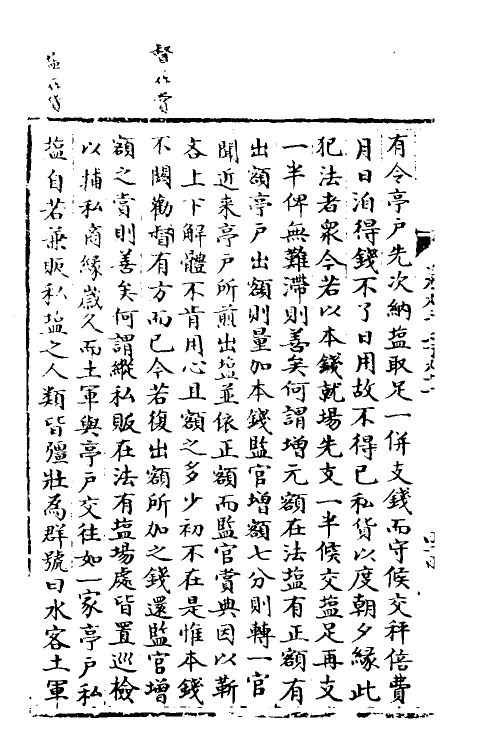 有令亭戶先次納塩取足一併支錢而守候交秤倍費
月日洎得錢不了日用故不得已私貨以度朝夕緣此
犯法者衆今若以本錢就場先支一半候交塩足再支
一半俾無難滯則善矣何謂增元額在法塩有正額有
出額亭戶出額則量加本錢監官增額七分則轉一官
聞近来亭戶所煎出塩並依正額而監官賞典因以靳
吝上下解體不肯用心且額之多少初不在是惟本錢
不闕勸督有方而已今若復出額所加之錢還監官增
額之賞則善矣何謂縱私販在法有塩場處皆置巡檢
以捕私商緣歲久而土軍與亭戶交往如一家亭戶私
塩自若兼販私塩之人類皆彊壯為群號曰水客土軍